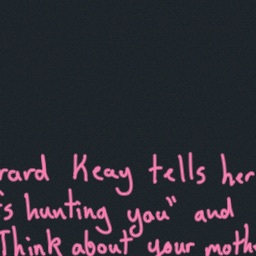 rard Keay tells her
's hunting you" and
Think about your moth